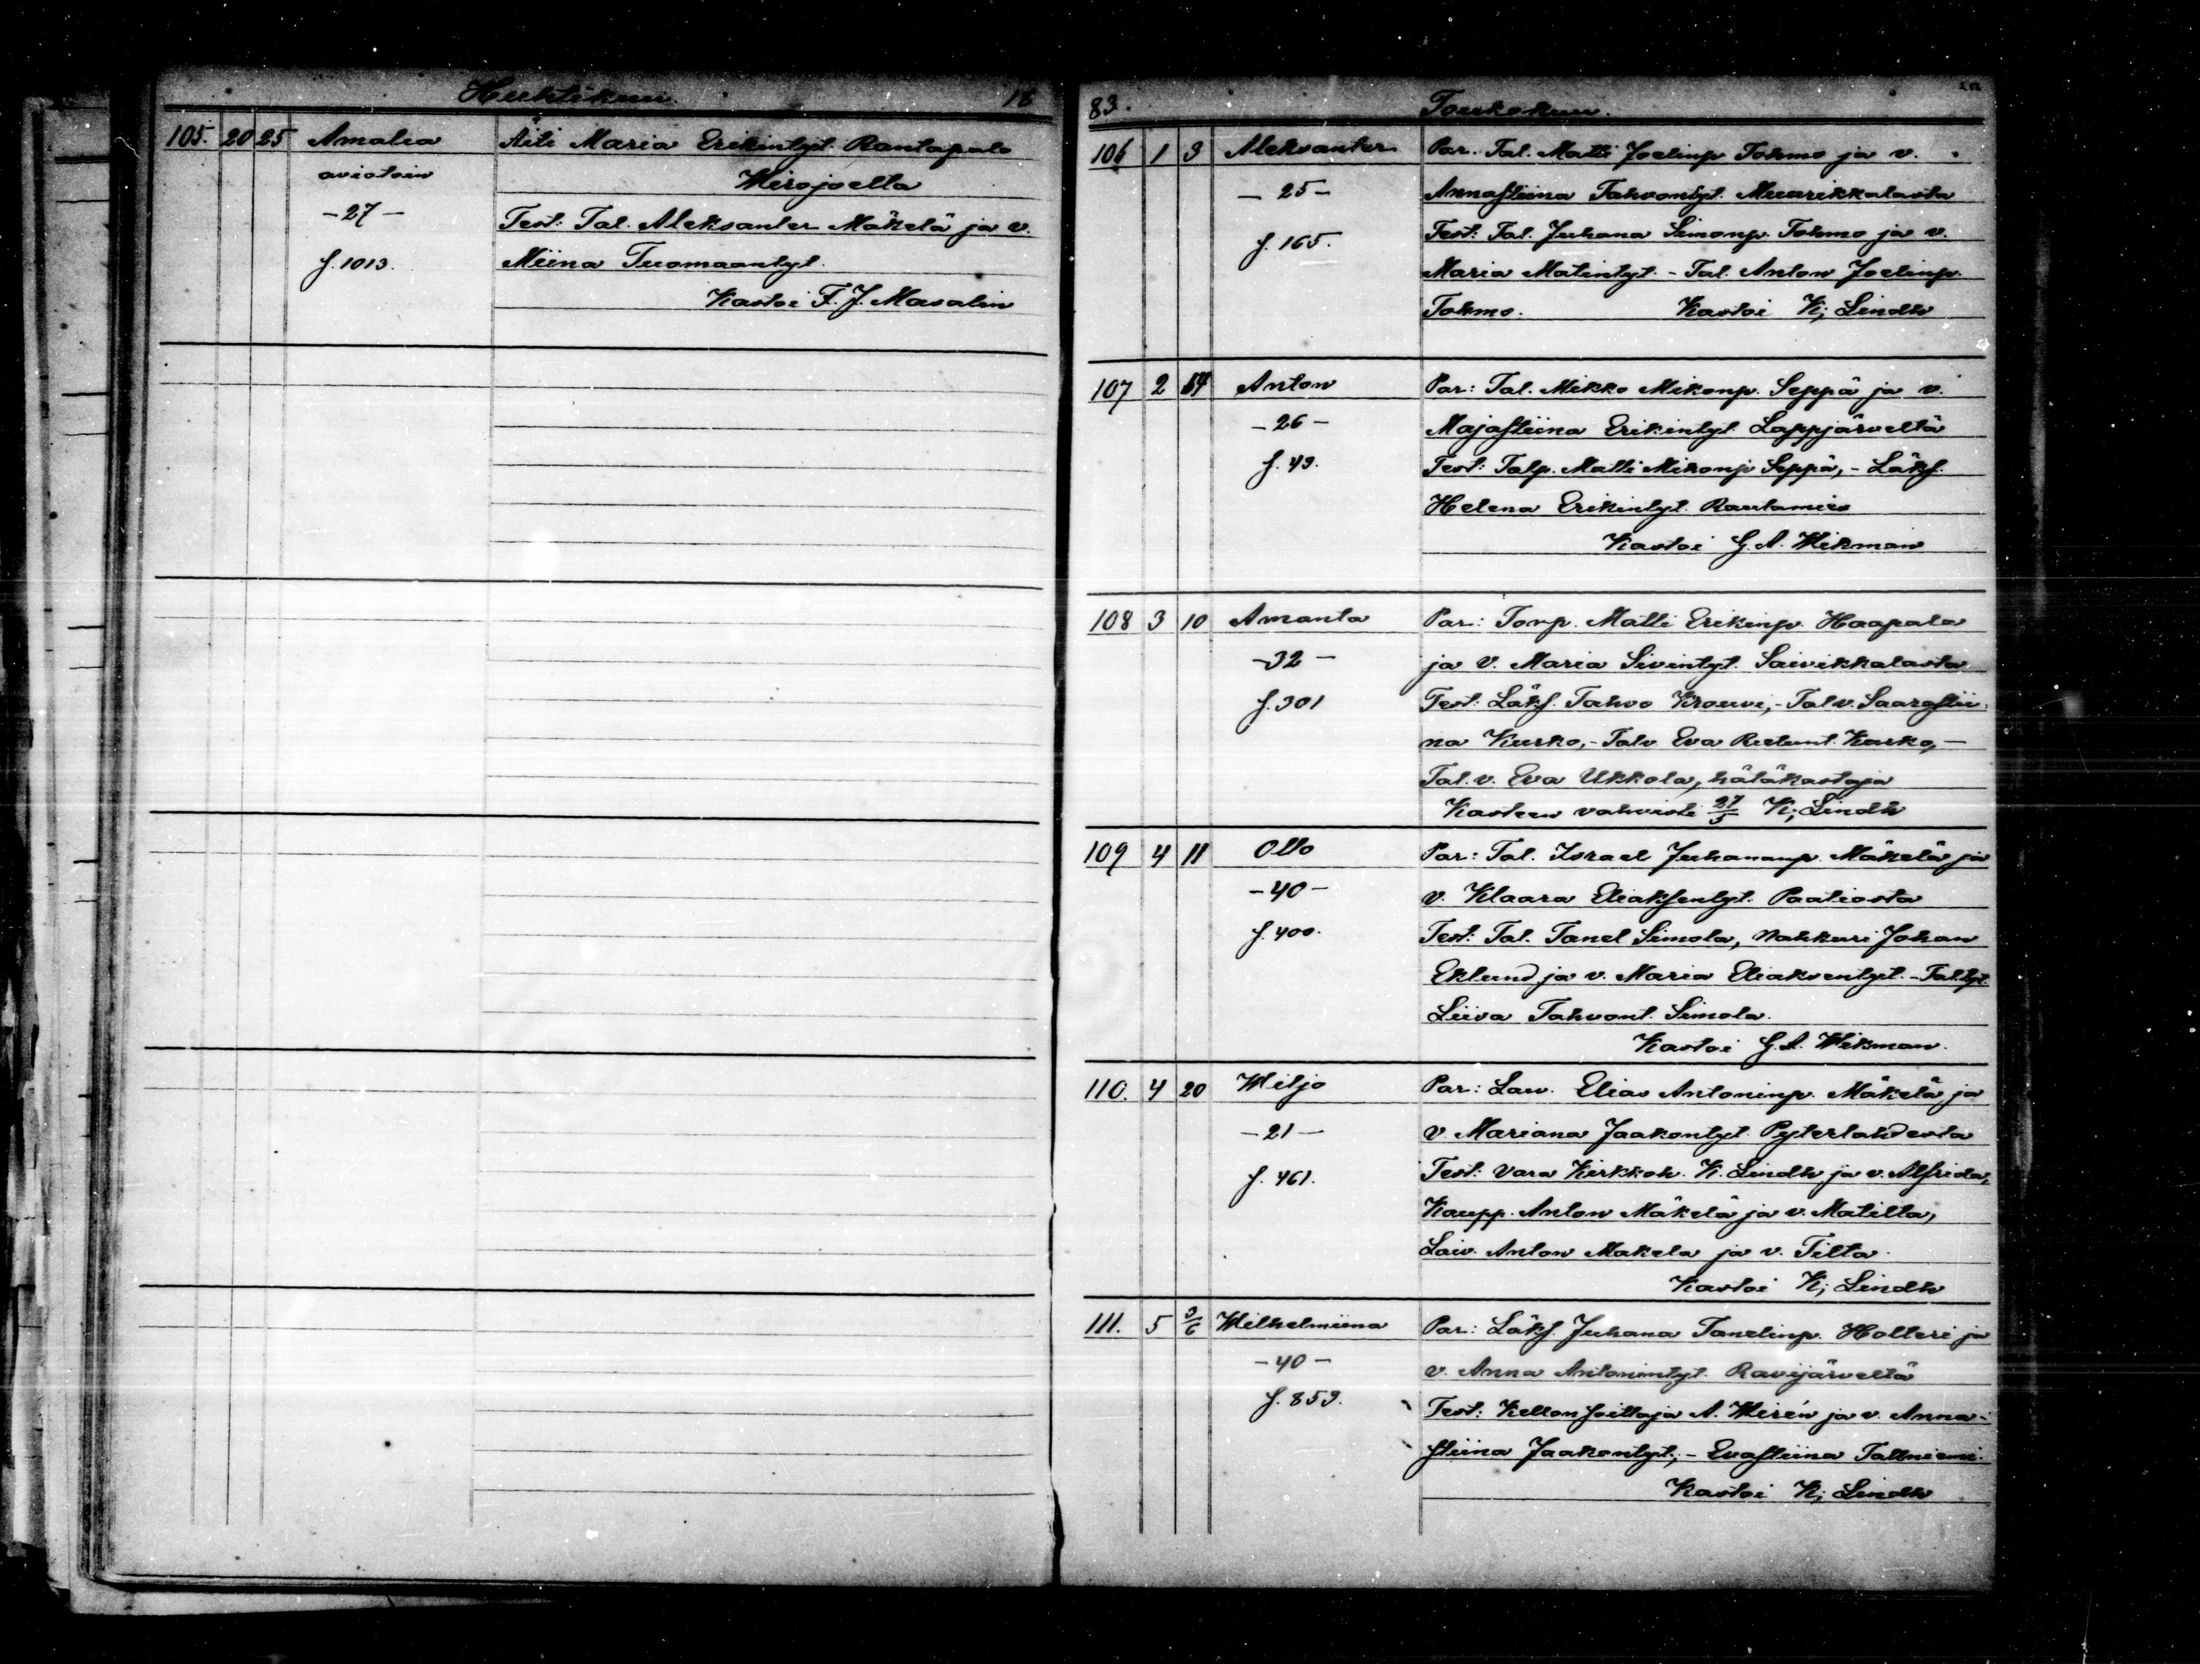 Huhtikuu. 18
105. 20 25 Amalia Äiti Maria Erikintyt. Rantapalo
aviotoin Wirojoelta
-27- Test: Tal. Aleksanter Mäkelä ja v.
f. 1013. Miina Tuomaantyt.
Kastoi F. J. Masalin
83. Toukokuu.
106 1 3 Aleksanter Par. Tal. Matti Joelinp. Tohmo ja v.
-25- Annastiina Tahvontyt. Muurikkalasta
f. 165. Test: Tal. Juhana Simonp. Tohmo ja v.
Maria Matintyt. - Tal. Anton Joelinp.
Tohmo. Kastoi K; Lindh
107 2 14 Anton Par: Tal. Mikko Mikonp. Seppä ja v.
-26- Majastiina Erikintyt Lappjärveltä
f. 49. Test: Talp. Matti Mikonp Seppä, - Läksf.
Helena Erikintyt. Rautamies
Kastoi G. A. Wikman
108 3 10 Amanta Par: Torp. Matti Erikinp. Haapala
-32- ja v. Maria Sivintyt. Saivikkalasta
f. 301 Test: Läksf. Tahvo Krouvi, - Tal v. Saarastii-
na Kurko, - Talv Eva Kurko, -
Tal. v. Eva Ukkola, hätäkastaja
Kasteen vahvisti 27/5 K; Lindh
109 4 11 Otto Par: Tal. Israel Juhananp. Mäkelä ja
-40- v. Klaara Eliaksentyt. Paatiosta
f. 400. Test: Tal. Tanel Simola, Nahkuri Johan
Eklund ja v. Maria Eliaksentyt. - Tal. tyt.
Liiva Tahvont. Simola.
Kastoi G. A. Wikman.
110. 4 20 Wiljo Par: Law. Elias Antoninp. Mäkelä ja
-21- v. Mariana Jaakontyt. Pyterlahdesta
f. 461. Test: Vara Kirkkoh. K. Lindh ja v. Alfrida,
Kaupp. Anton Mäkelä ja v. Matilta,
Laiv. Anton Makela ja v. Tilta.
Kastoi K; Lindh
111. 5 3/6 Wilhelmiina Par: Läksf. Juhana Tanelinp. Holteri ja
-40- v. Anna Antonintyt. Ravijärveltä
f. 859. Test: Kellonsoittaja A. Wirén ja v. Anna-
stiina Jaakontyt; - Evastiina Tallniemi.
Kastoi K; Lindh